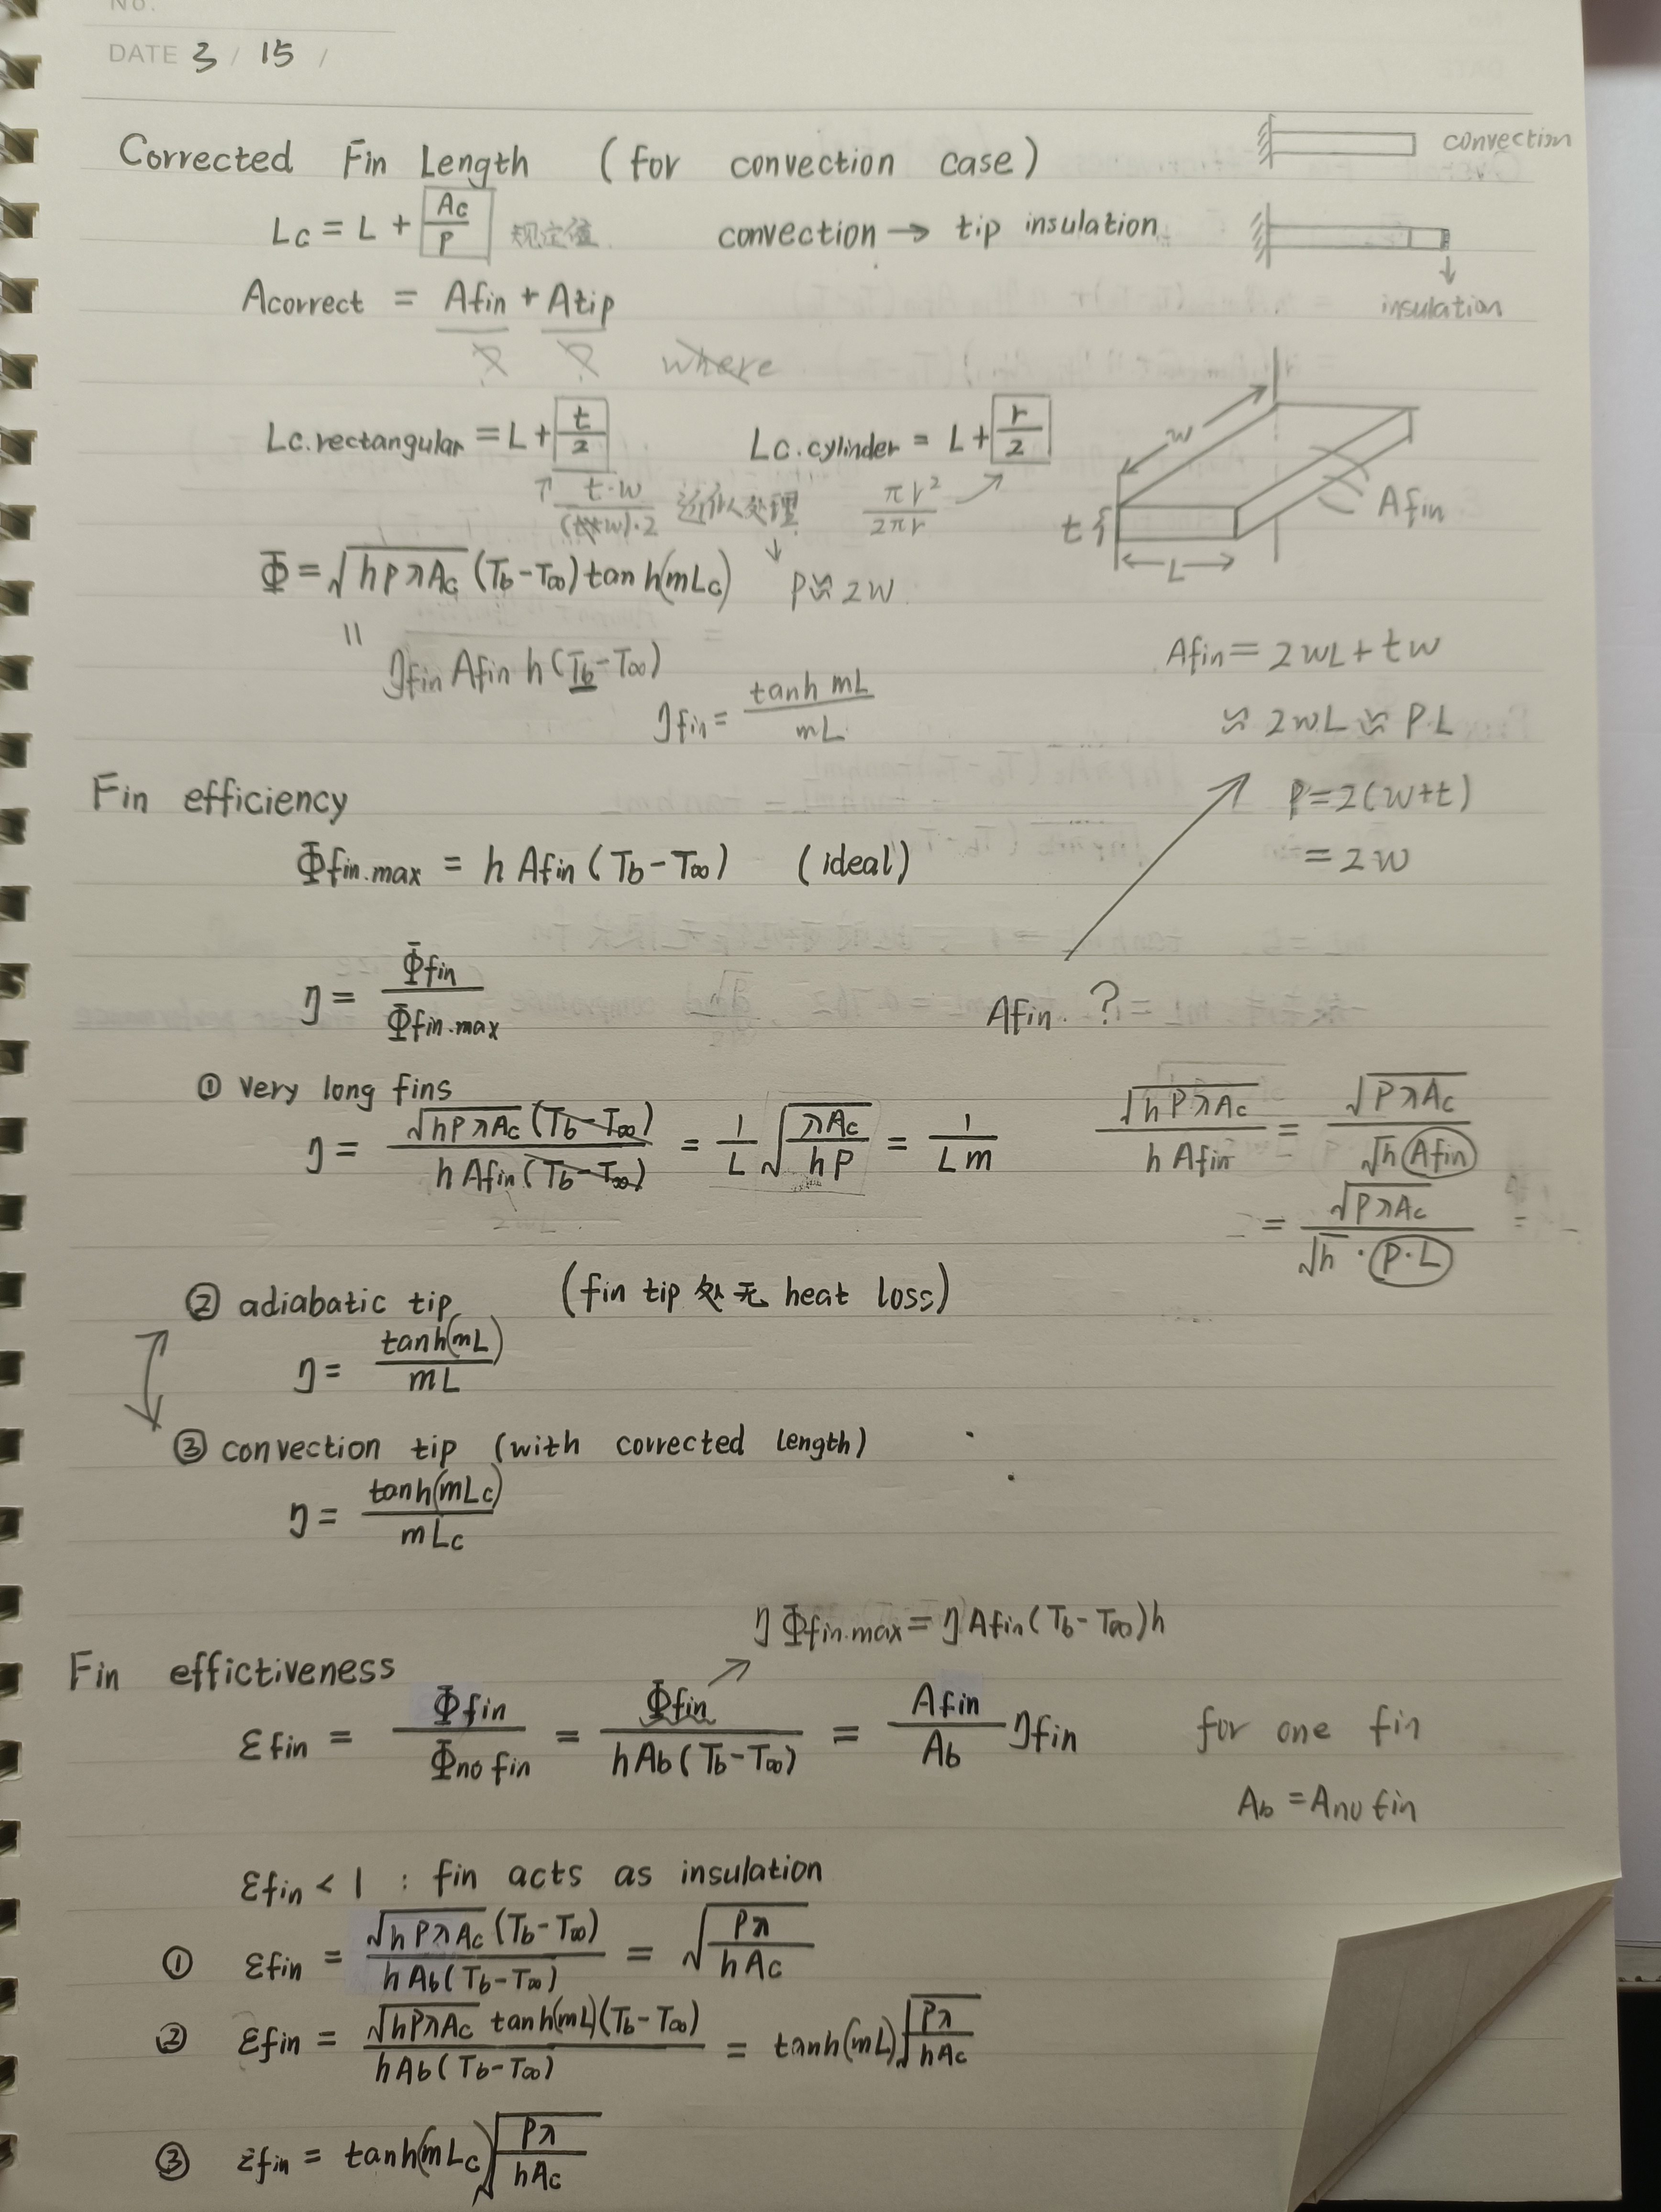 DATE 3 / 15 /
Corrected Fin Length (for convection case)
convection
Lc = L + Ac/P 规定值 convection → tip insulation
insulation
Acorrect = Afin + Atip
where
Lc.rectangular = L + t/2 Lc.cylinder = L + r/2
↑ t·w/(t+w)·2 近似处理 πr²/2πr
w
t
L
Afin
Φ = √(hPλAc) (Tb-T∞) tanh(mLc) P≈2w
= ηfin Afin h (Tb-T∞)
ηfin = tanh mL / mL
Afin = 2wL + tw
≈ 2wL ≈ PL
P = 2(w+t)
= 2w
Fin efficiency
Φfin.max = h Afin (Tb-T∞) (ideal)
η = Φfin / Φfin.max
Afin ?
① very long fins
η = √(hPλAc) (Tb-T∞) / h Afin (Tb-T∞) = 1/L √(λAc/hP) = 1/Lm
√(hPλAc) / h Afin = √(PλAc) / √h Afin
= √(PλAc) / √h · P·L
② adiabatic tip (fin tip 处无 heat loss)
η = tanh(mL) / mL
③ convection tip (with corrected length)
η = tanh(mLc) / mLc
η Φfin.max = η Afin (Tb-T∞) h
Fin effictiveness
εfin = Φfin / Φno fin = Φfin / hAb(Tb-T∞) = Afin/Ab ηfin for one fin
Ab = Ano fin
εfin < 1 : fin acts as insulation
① εfin = √(hPλAc) (Tb-T∞) / hAb(Tb-T∞) = √(Pλ/hAc)
② εfin = √(hPλAc) tanh(mL)(Tb-T∞) / hAb(Tb-T∞) = tanh(mL) √(Pλ/hAc)
③ εfin = tanh(mLc) √(Pλ/hAc)